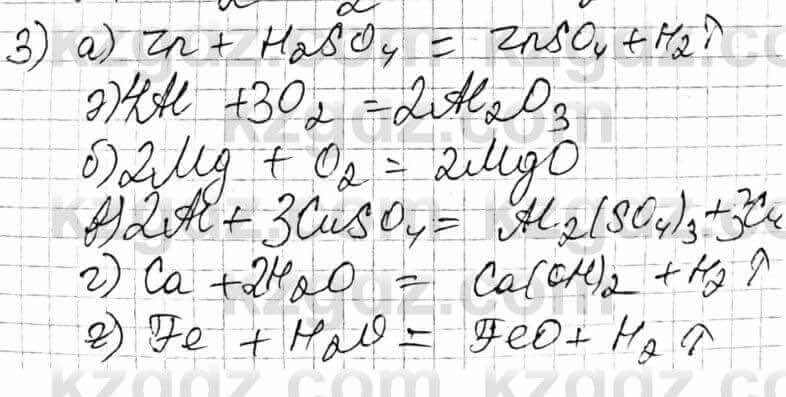 3) а) Zn + H₂SO₄ = ZnSO₄ + H₂↑
ә) 4Al + 3O₂ = 2Al₂O₃
б) 2Mg + O₂ = 2MgO
в) 2Al + 3CuSO₄ = Al₂(SO₄)₃ + 3Cu
г) Ca + 2H₂O = Ca(OH)₂ + H₂↑
ғ) Fe + H₂O = FeO + H₂↑
kzgdz.com